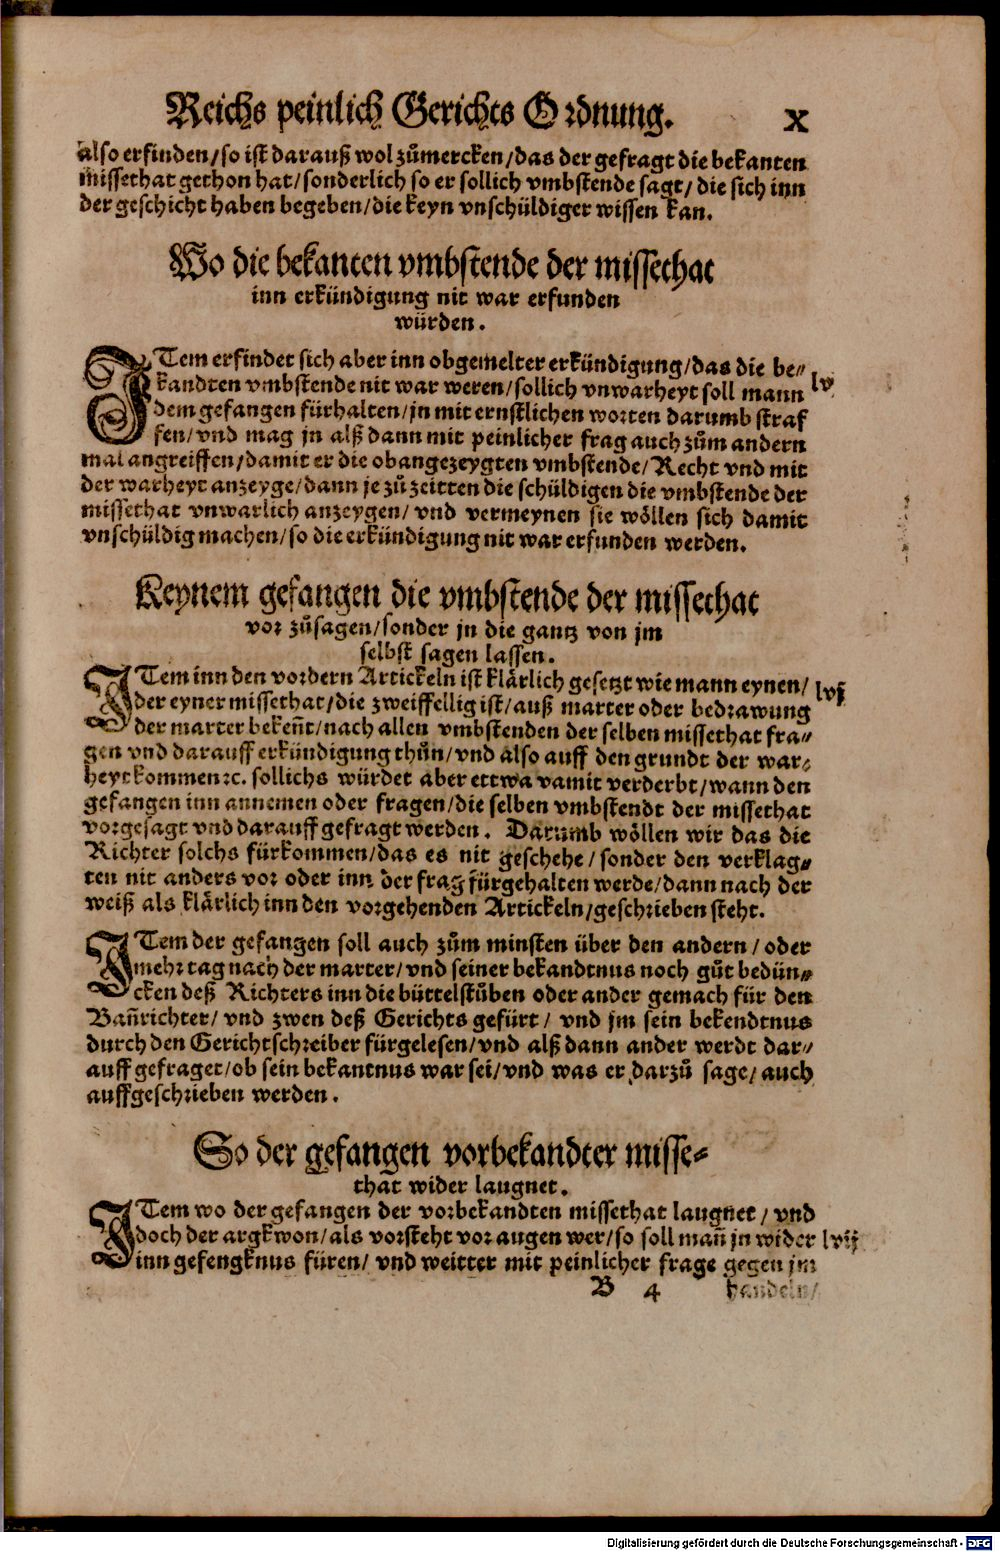 Reichs peinlich Gerichts Ordnung. X
also erfinden/so ist darauß wol zůmercken/das der gefragt die bekanten
missethat gethon hat/sonderlich so er sollich vmbstende sagt/die sich inn
der geschicht haben begeben/die keyn vnschüldiger wissen kan.
Wo die bekanten vmbstende der missethat
inn erkündigung nit war erfunden
würden.
ITem erfindet sich aber inn obgemelter erkündigung/das die be-
kandten vmbstende nit war weren/sollich vnwarheyt soll mann lv.
dem gefangen fürhalten/jn mit ernstlichen worten darumb straf
fen/vnd mag jn alß dann mit peinlicher frag auch zům andern
mal angreiffen/damit er die obangezeygten vmbstende/Recht vnd mit
der warheyt anzeyge/dann je zů zeitten die schüldigen die vmbstende der
missethat vnwarlich anzeygen/ vnd vermeynen sie wöllen sich damit
vnschüldig machen/so die erkündigung nit war erfunden werden.
Keynem gefangen die vmbstende der missethat
vor zůsagen/sonder jn die gantz von jm
selbst sagen lassen.
ITem inn den vordern Artickeln ist klärlich gesetzt wie mann eynen/
der eyner missethat/die zweiffellig ist/auß marter oder bedrawung lvj
der marter bekeñt/nach allen vmbstenden der selben missethat fra-
gen vnd darauff erkündigung thůn/vnd also auff den grundt der war-
heyt kommen ꝛc. sollichs würdet aber ettwa vamit verderbt/wann den
gefangen inn annemen oder fragen/die selben vmbstendt der missethat
vorgesagt vnd darauff gefragt werden. Darumb wöllen wir das die
Richter solchs fürkommen/das es nit geschehe/sonder den verklag-
ten nit anders vor oder inn der frag fürgehalten werde/dann nach der
weiß als klärlich inn den vorgehenden Artickeln/geschrieben steht.
ITem der gefangen soll auch zům minsten über den andern/oder
mehr tag nach der marter/vnd seiner bekandtnus noch gůt bedün-
cken deß Richters inn die büttelstůben oder ander gemach für den
Bañrichter/ vnd zwen deß Gerichts gefürt/ vnd jm sein bekendtnus
durch den Gerichtschreiber fürgelesen/vnd alß dann ander werdt dar-
auff gefraget/ob sein bekantnus war sei/vnd was er darzů sage/auch
auffgeschrieben werden.
So der gefangen vorbekandter misse-
that wider laugnet.
ITem wo der gefangen der vorbekandten missethat laugnet/ vnd
doch der argkwon/als vorsteht vor augen wer/so soll mañ jn wider lvij
inn gefengknus füren/ vnd weitter mit peinlicher frage gegen jm
B 4 handeln/
Digitalisierung gefördert durch die Deutsche Forschungsgemeinschaft - DFG